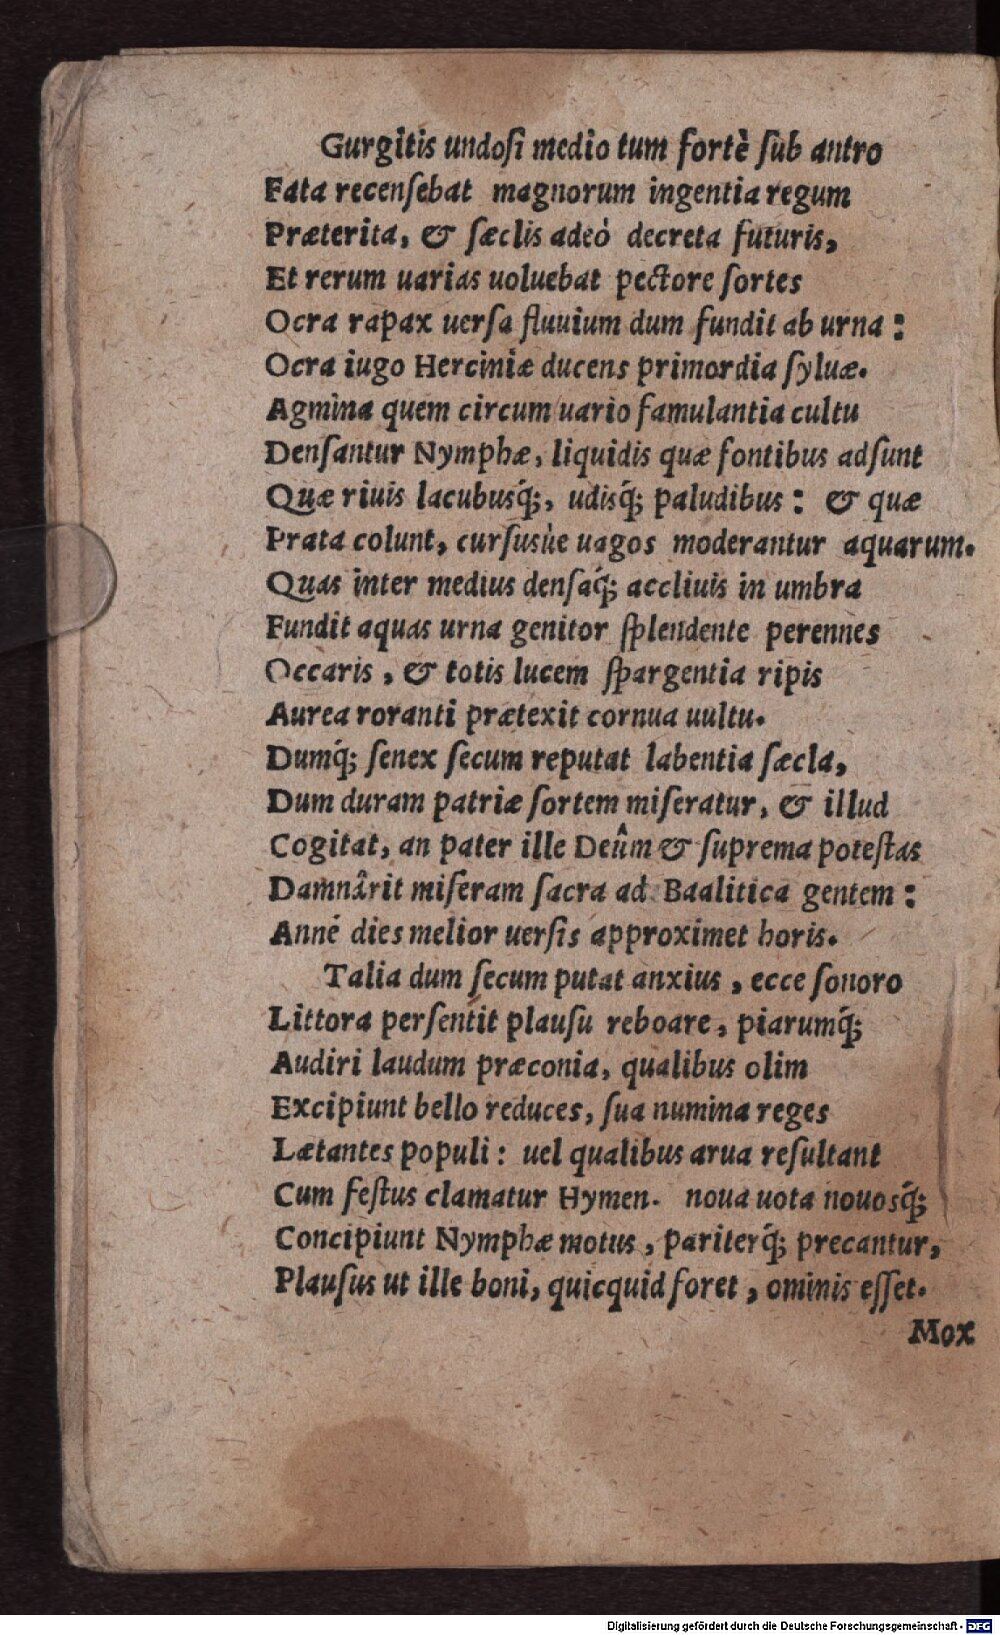 Gurgitis undoſi medio tum fortè ſub antro
Fata recenſebat magnorum ingentia regum
Præterita, & ſæclis adeò decreta futuris,
Et rerum uarias uoluebat pectore ſortes
Ocra rapax uerſa fluuium dum fundit ab urna:
Ocra iugo Herciniæ ducens primordia ſyluæ.
Agmina quem circum uario famulantia cultu
Denſantur Nymphæ, liquidis quæ fontibus adſunt
Quæ riuis lacubusq́;, udisq́; paludibus: & quæ
Prata colunt, curſusùe uagos moderantur aquarum.
Quas inter medius denſaq́; accliuis in umbra
Fundit aquas urna genitor ſplendente perennes
Occaris, & totis lucem ſpargentia ripis
Aurea roranti prætexit cornua uultu.
Dumq́; ſenex ſecum reputat labentia ſæcla,
Dum duram patriæ ſortem miſeratur, & illud
Cogitat, an pater ille Deûm & ſuprema poteſtas
Damnârit miſeram ſacra ad Baalitica gentem:
Anné dies melior uerſis approximet horis.
Talia dum ſecum putat anxius, ecce ſonoro
Littora perſentit plauſu reboare, piarumq́;
Audiri laudum præconia, qualibus olim
Excipiunt bello reduces, ſua numina reges
Lætantes populi: uel qualibus arua reſultant
Cum feſtus clamatur Hymen. noua uota nouosq́;
Concipiunt Nymphæ motus, pariterq́; precantur,
Plauſus ut ille boni, quicquid foret, ominis eſſet.
Mox
Digitalisierung gefördert durch die Deutsche Forschungsgemeinschaft - DFG